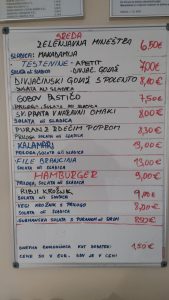 SREDA
ZELENJAVNA MINEŠTRA 6,50€
SLADICA: MAKARONIJA
TESTENINE - APETIT 7,00€
SOLATA ALI SLADICA
DIVJAČINSKI GOLAŽ S POLENTO 8,10€
SOLATA ALI SLADICA
GOBOV PASTIČO 7,50€
SOLATA ALI SLADICA
V NARAVNI OMAKI 8,00€
SOLATA ALI SLADICA
PURAN Z RDEČIM POPROM 8,30€
PRILOGA, SOLATA ALI SLADICA
KALAMARI 13,00€
PRILOGA, SOLATA ALI SLADICA
FILE BRANCINA 13,00€
SOLATA ALI SLADICA
HAMBURGER 9,00€
PRILOGA, SOLATA ALI SLADICA
RIBJI KROŽNIK 9,00€
SOLATA ALI SLADICA
VEGI KROŽNIK S PRILOGO 8,00€
SOLATA ALI SLADICA
S PURANOM IN SIROM 8,50€
DODATEK: 1,50€
CENE SO V EUR. DDV JE V CENI